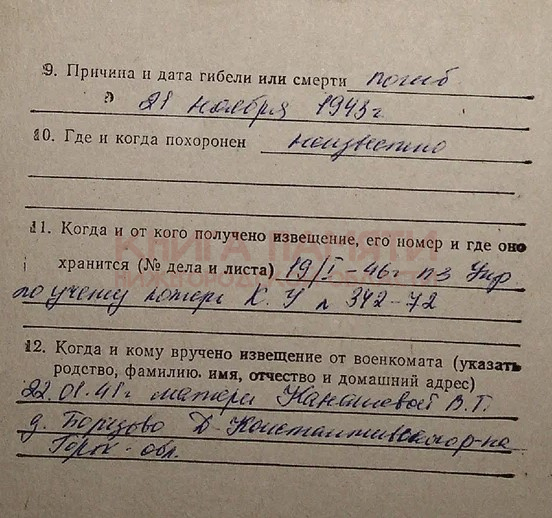 9. Причина и дата гибели или смерти погиб
21 ноября 1943 г
10. Где и когда похоронен неизвестно
11. Когда и от кого получено извещение, его номер и где оно
хранится (№ дела и листа) 19/I-46 г из Упр
по учету потерь К. У № 342-72
12. Когда и кому вручено извещение от военкомата (указать
родство, фамилию, имя, отчество и домашний адрес)
матери В. Г.
д. Борцово Д-Константиновского р-на
Горьк. обл.
КНИГА ПАМЯТИ